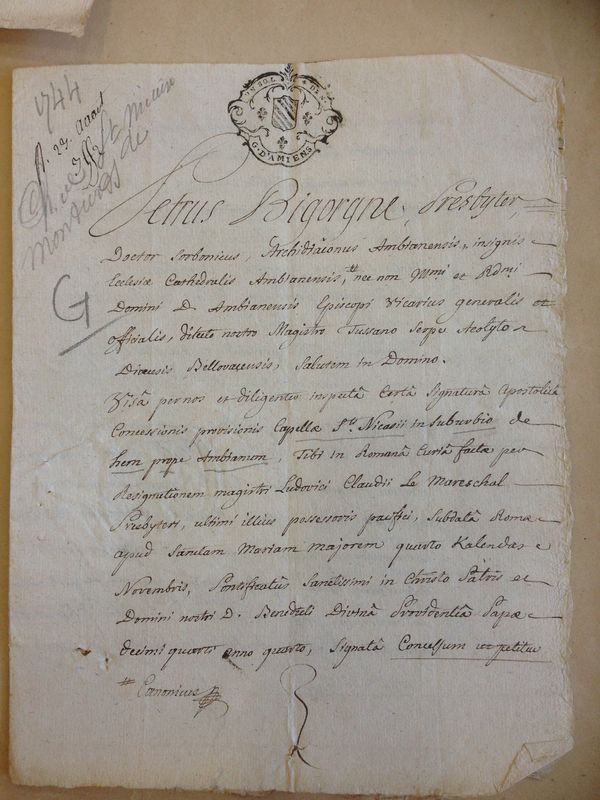 1744
UN SOL
G. D'AMIENS
G
Petrus Bigorgne, Presbyter,
Doctor Sorbonicus, Archidiaconus Ambianensis, insignis
Ecclesiæ Cathedralis Ambianensis, # nec non Illmi et Rdmi
Domini D. Ambianensis Episcopi Vicarius generalis et
officialis, dilecto nostro Magistro Tussano Serpe Acolyto
Diœcesis Bellovacensis, Salutem in Domino.
Visâ per nos et diligenter inspectâ Certâ Signaturâ Apostolicâ
Concessionis provisionis Capellæ Sti. Nicasii in Suburbio de
hem prope Ambianum, Tibi in Romanâ Curiâ factæ per
Resignationem magistri Ludovici Claudii Le Mareschal
Presbyteri, ultimi illius possessoris pacifici, Subdatâ Romæ
apud Sanctam Mariam majorem quarto Kalendas
Novembris, Pontificatûs Sanctissimi in Christo Patris et
Domini nostri D. Benedicti Divinâ Providentiâ Papæ
decimi quarti anno quarto, Signatâ Concessum ut petitur
# Canonicus